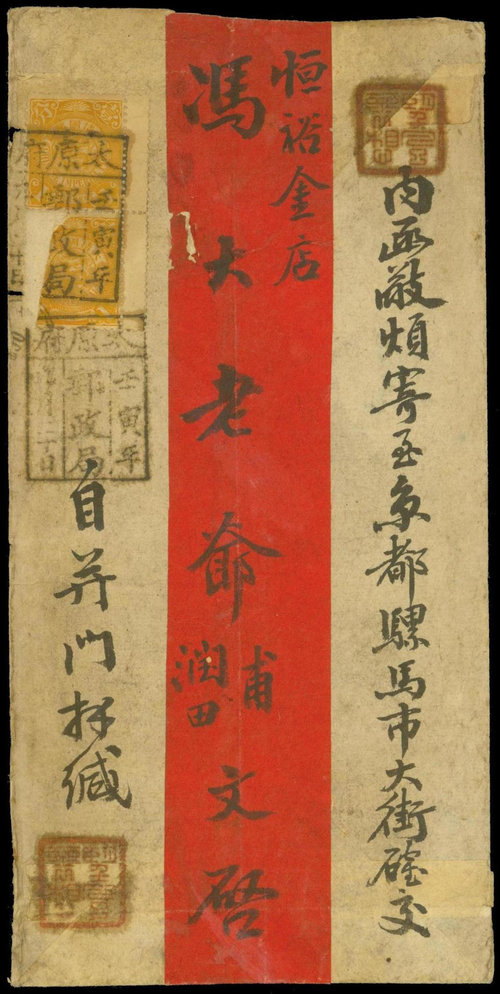 内函敬煩寄至京都騾馬市大街確交
恒裕金店
馮大老爺
潤田
甫
文啓
太原府
壬寅年
郵政局
太原府
壬寅年
郵政局
自并門拜緘